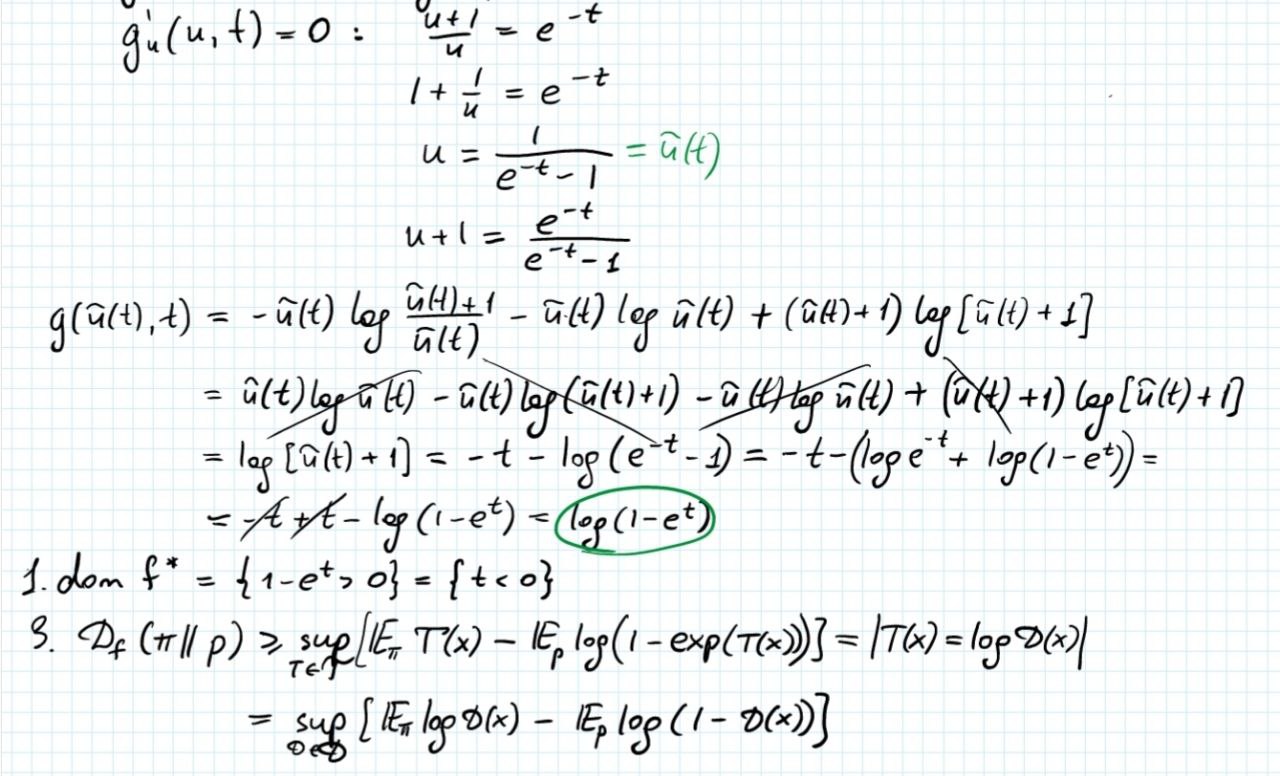 g'ᵤ(u, t) = 0 : (u+1)/u = e^{-t}
1 + 1/u = e^{-t}
u = 1/(e^{-t} - 1) = ũ(t)
u + 1 = e^{-t}/(e^{-t} - 1)
g(ũ(t), t) = - ũ(t) log (ũ(t)+1)/ũ(t) - ũ(t) log ũ(t) + (ũ(t)+1) log [ũ(t) + 1]
= ũ(t) log ũ(t) - ũ(t) log (ũ(t)+1) - ũ(t) log ũ(t) + (ũ(t)+1) log [ũ(t)+1]
= log [ũ(t) + 1] = -t - log (e^{-t} - 1) = -t - (log e^{-t} + log(1-e^t)) =
= -t + t - log (1-e^t) = log (1-e^t)
1. dom f* = {1-e^t > 0} = {t < 0}
3. D_f (π || p) ≥ sup_{T∈𝒯} [𝔼_π T(x) - 𝔼_p log(1 - exp(T(x)))] = |T(x) = log D(x)|
= sup_{D∈𝒟} [𝔼_π log D(x) - 𝔼_p log (1 - D(x))]